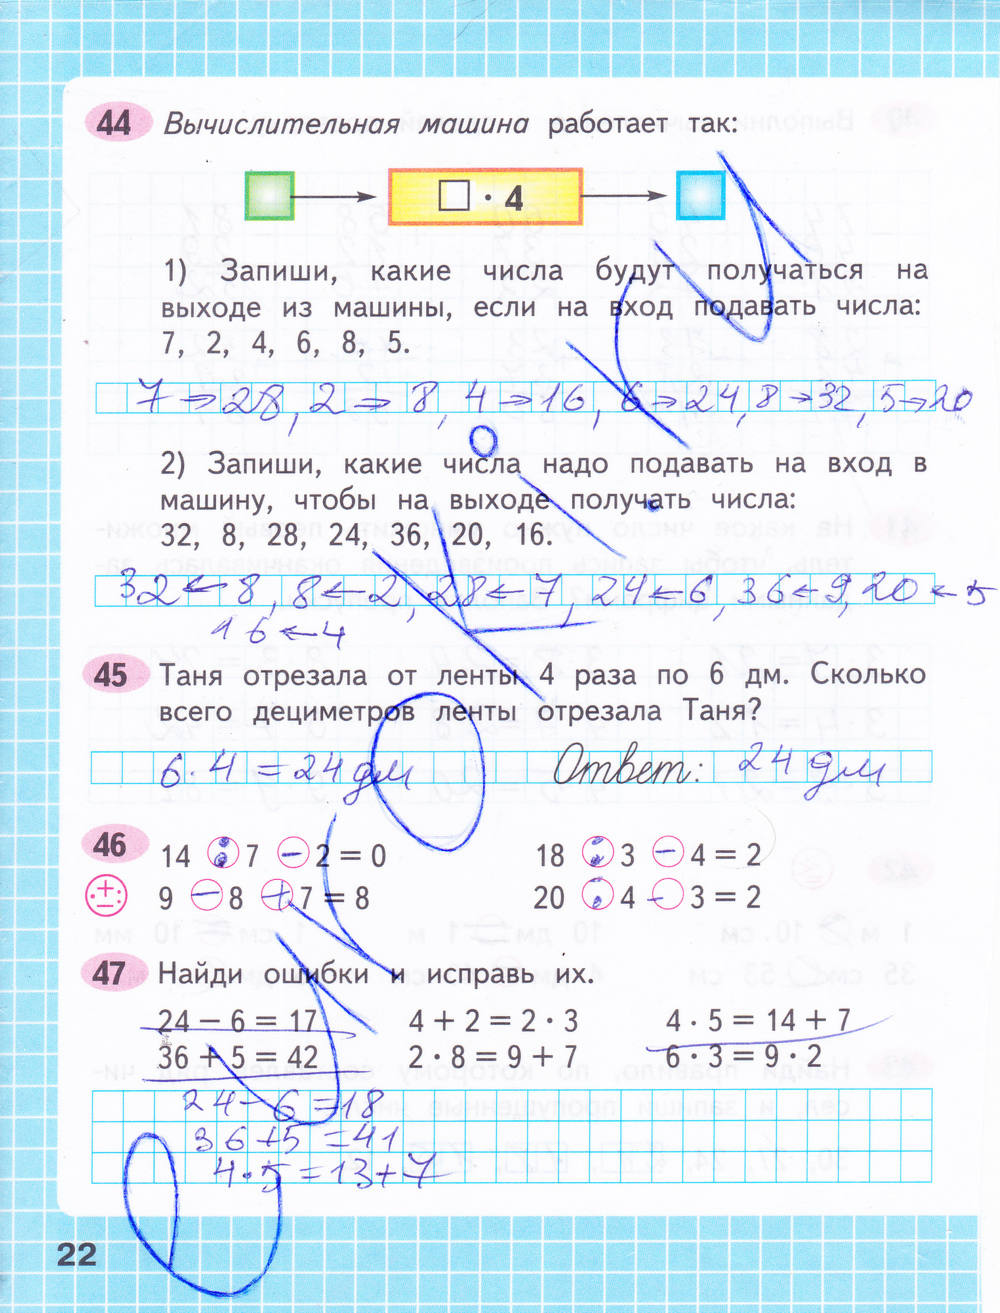 44 Вычислительная машина работает так:
□ · 4
1) Запиши, какие числа будут получаться на
выходе из машины, если на вход подавать числа:
7, 2, 4, 6, 8, 5.
7 → 28, 2 → 8, 4 → 16, 6 → 24, 8 → 32, 5 → 20
2) Запиши, какие числа надо подавать на вход в
машину, чтобы на выходе получать числа:
32, 8, 28, 24, 36, 20, 16.
32 ← 8, 8 ← 2, 28 ← 7, 24 ← 6, 36 ← 9, 20 ← 5
16 ← 4
45 Таня отрезала от ленты 4 раза по 6 дм. Сколько
всего дециметров ленты отрезала Таня?
6 · 4 = 24 дм Ответ: 24 дм
46 14 : 7 − 2 = 0 18 : 3 − 4 = 2
9 − 8 + 7 = 8 20 : 4 − 3 = 2
47 Найди ошибки и исправь их.
24 − 6 = 17 4 + 2 = 2 · 3 4 · 5 = 14 + 7
36 + 5 = 42 2 · 8 = 9 + 7 6 · 3 = 9 · 2
24 − 6 = 18
36 + 5 = 41
4 · 5 = 13 + 7
22